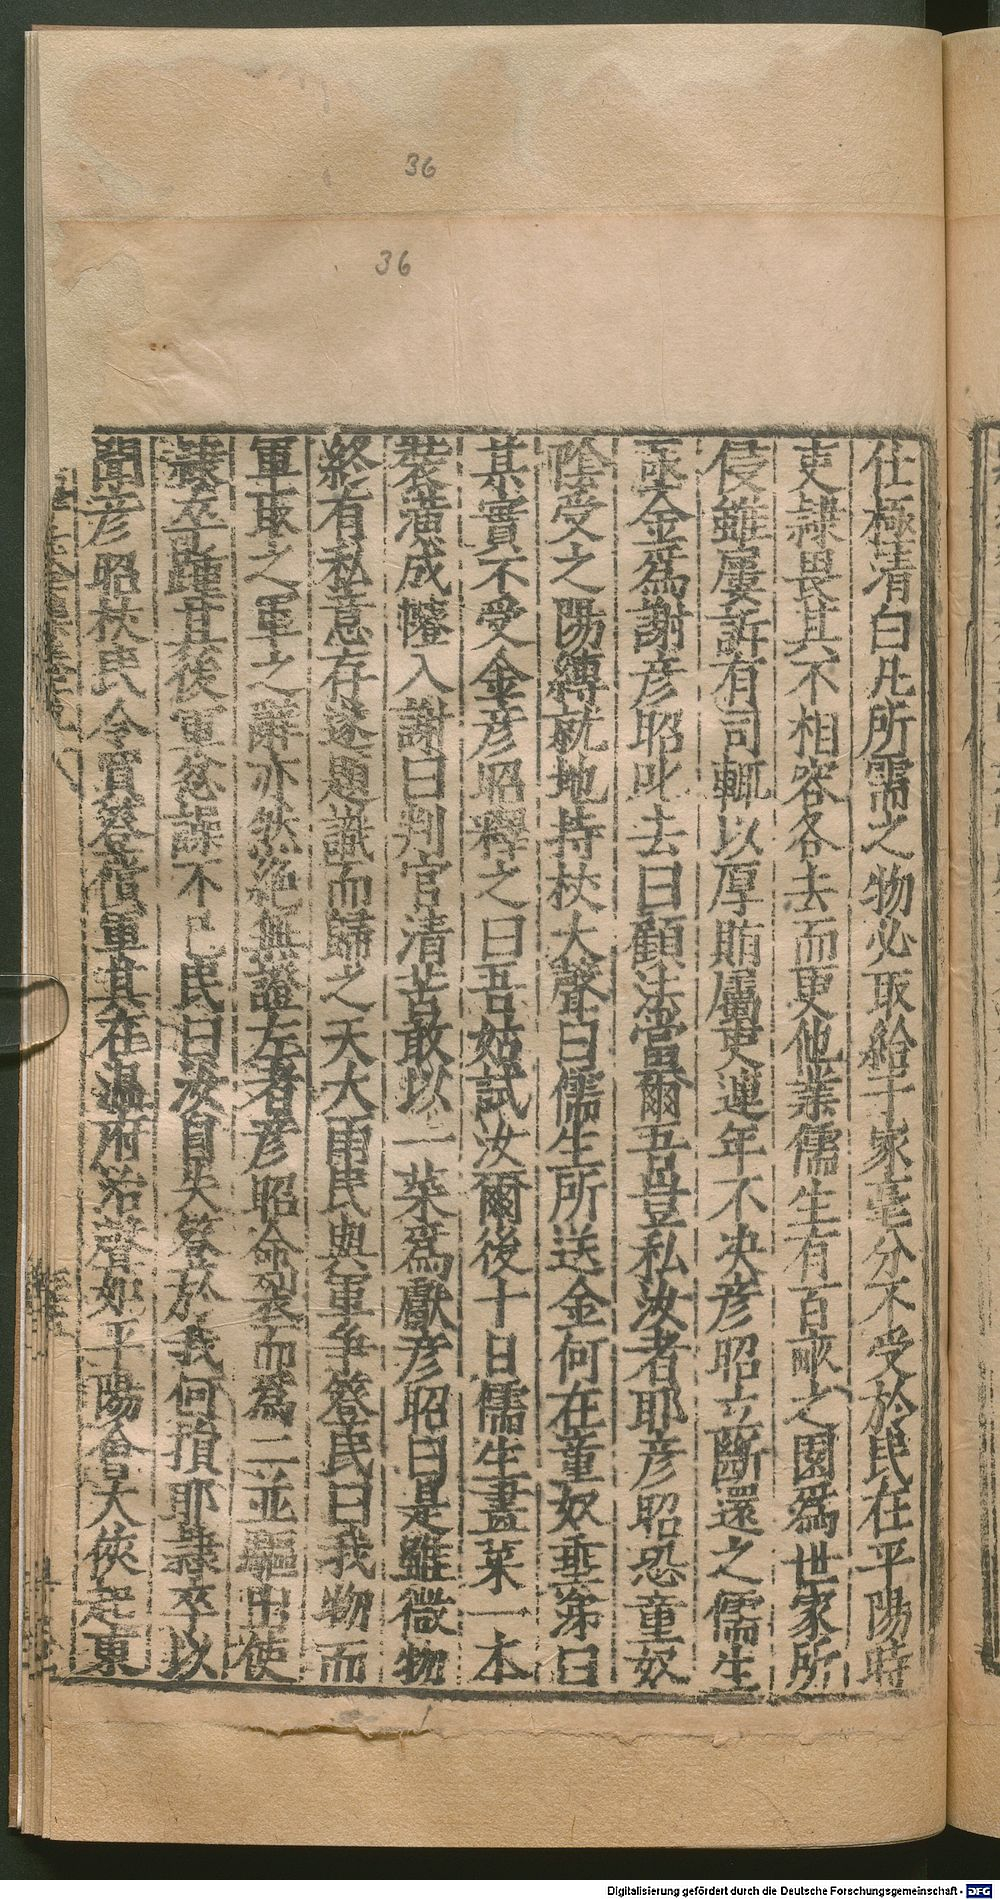 36
36
仕極清白凡所需之物必取給于家毫分不受於民在平陽時
吏隸畏其不相容各去而更他業儒生有百畝之園為世家所
侵雖屢訴有司輒以厚賄屬吏連年不決彥昭立斷還之儒生
函金為謝彥昭叱去曰顧法當爾吾豈私汝者耶彥昭恐童奴
陰受之陽縛就地持杖大聲曰儒生所送金何在童奴垂涕曰
某實不受金彥昭釋之曰吾姑試汝爾後十日儒生畫菜一本
裝潢成㡧入謝曰判官清苦敢以一菜為獻彥昭曰是雖微物
終有私意存遂題識而歸之天大雨民與軍爭簦民曰我物而
軍取之軍之辭亦然絕無證左者彥昭命裂而為二並驅出使
隸卒踵其後軍忿譟不已民曰汝自失簦於我何損耶隸卒以
聞彥昭杖民令買簦償軍其在溫府治聲如平陽會大俠起東
Digitalisierung gefördert durch die Deutsche Forschungsgemeinschaft - DFG